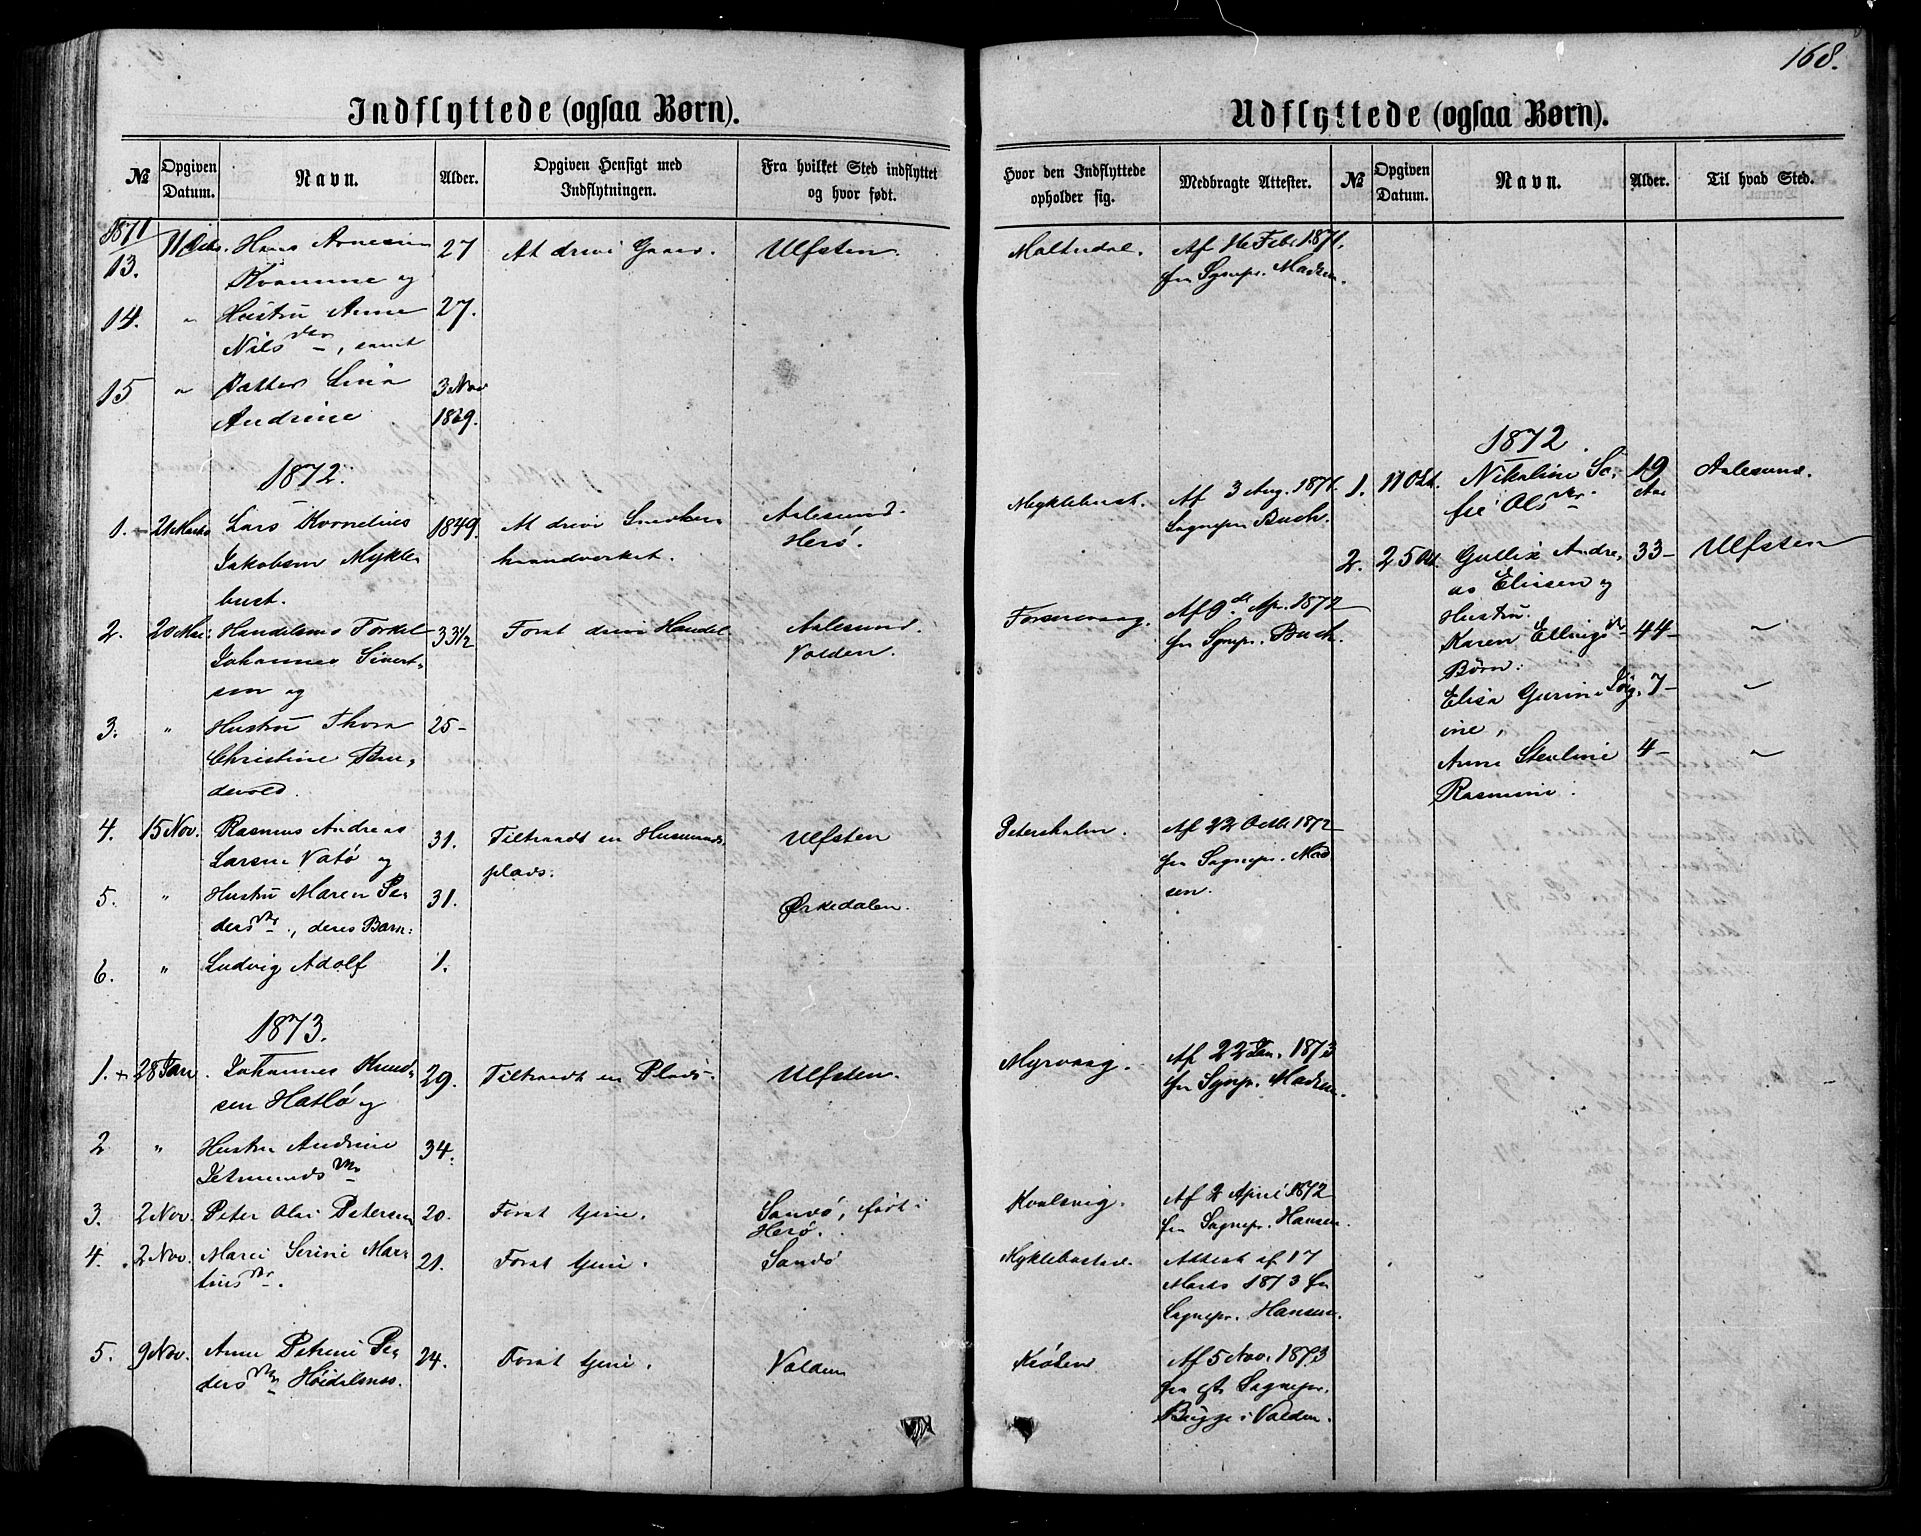 168.
Indflyttede (ogsaa Børn).
№ Opgiven Datum. Navn. Alder. Opgiven Hensigt med Indflytningen. Fra hvilket Sted indflyttet og hvor født.
1871
13. Hans Arnesen 27 At drive Gaard. Ulfsten.
Kvamme og
14. " Hustru Anne 27.
Nilsdtr, samt
15 " Datter Lina 3 Nov
Andrine 1869.
1872.
1. Lars Kornelius 1849. At drive Snedker Aalesund.
Jakobsen Mykle håndverket. Herø.
bust.
2. 20 Mai Handelsm Torkel 33½ Forat drive Handel Aalesund.
Johannes Sivert- Volden.
sen og
3. " Hustru Thora 25-
Christine
4. 15 Nov. Rasmus Andreas 31. Tiltraadt en Husmands Ulfsten
Larsen Vatø og plads.
5. " Hustru Maren Pe 31. Ørkedalen.
dersdtr., deres Barn:
6. " Ludvig Adolf 1.
1873.
1. + 28 Jan. Johannes Knud 29. Tiltraadt en Plads. Ulfsten.
sen Hatlø og
2 " Hustru Andrine 34.
Jetmundsdtr
3. 2 Nov. Peter Olai Petersen 20. Forat tjene. Sandø, født:
Herø.
4. 2 Nov. Maren Serine Mar 21. Forat tjene. Sandø
tinsdtr.
5. 9 Nov. Anne Petrine Pe 24. Forat tjene. Volden
dersdtr
Udflyttede (ogsaa Børn).
Hvor den Indflyttede opholder sig. Medbragte Attester. № Opgiven Datum. Navn. Alder. Til hvad Sted.
Moltudal. Af 16 Feb. 1871.
fra Sognepr. Madsen.
1872.
Myklebust. Af 3 Aug. 1871. 1. 11 Okt. Nikoline So 19 Aar Aalesund.
Sognepr. Buch. fie Olsdtr.
2. 25 Okt. Gullix Andre 33- Ulfsten
as Eliasen og
Af 9de Apr. 1872 Hustru:
fra Sognepr. Buch. Karen Ellingsdtr 44- "
Børn:
Elisa Gurine 7- "
ine,
Anne Stenline 4- "
Rasmine.
Petersholm. Af 22 Octb. 1872
fra Sognepr. Mad
sen.
Myrvaag. Af 22 Jan. 1873
fra Sognepr. Madsen.
Kvalsvig. Af 2 April 1872
fra Sognepr. Hansen.
Myklebustad. Attest af 17
Marts 1873 fra
Sognepr. Hansen.
Af 5 Nov. 1873
fra Sognepr.
Bugge i Volden.